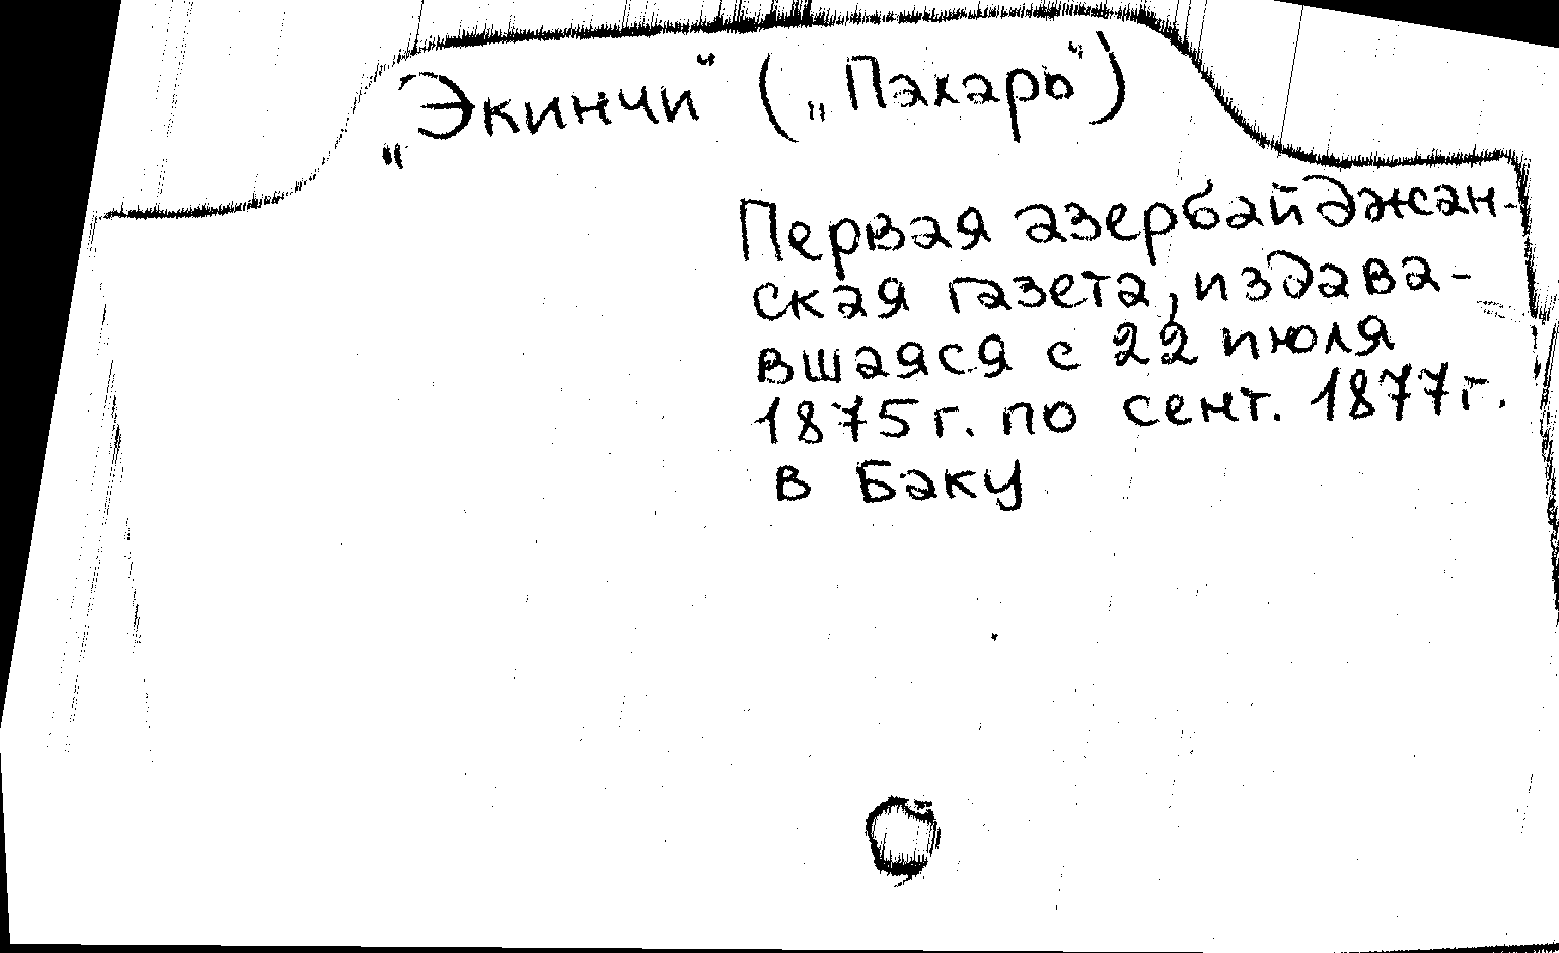 „Экинчи“ („Пахарь“)
Первая азербайджан-
ская газета, издава-
вшаяся с 22 июля
1875 г. по сент. 1877 г.
в Баку